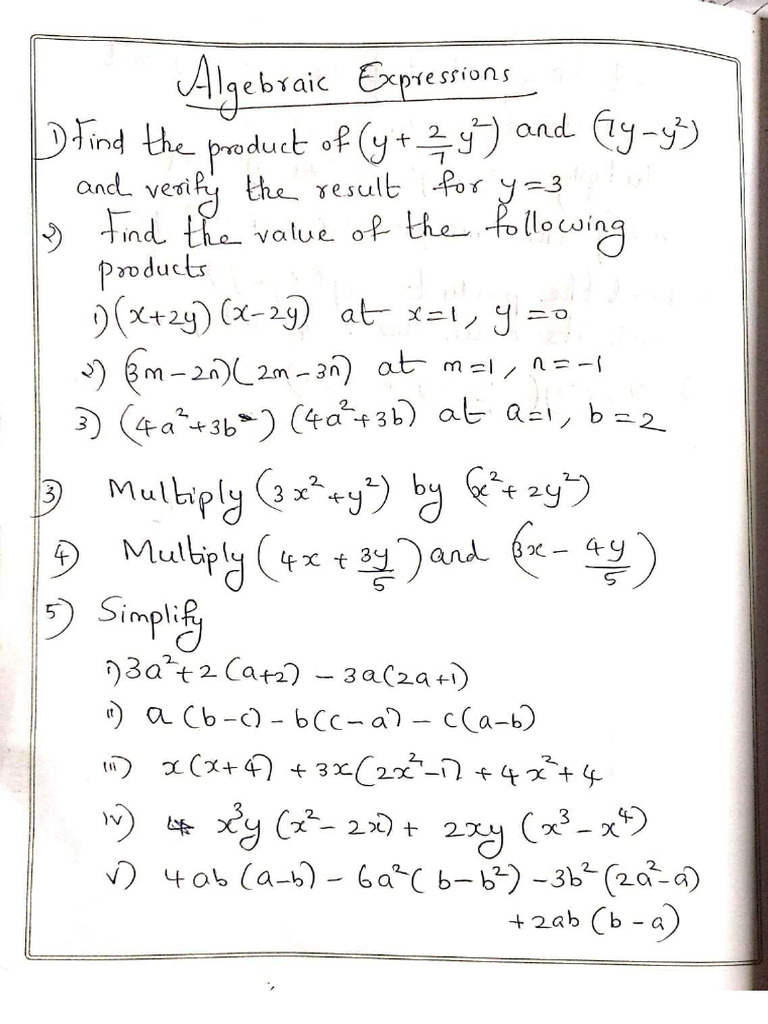 Algebraic Expressions
1) Find the product of (y + 2/7 y²) and (7y - y²)
and verify the result for y = 3
2) Find the value of the following
products
1) (x+2y) (x-2y) at x=1, y=0
2) (3m-2n)(2m-3n) at m=1, n=-1
3) (4a²+3b) (4a²+3b) at a=1, b=2
3) Multiply (3x²+y²) by (x²+2y²)
4) Multiply (4x + 3y/5) and (3x - 4y/5)
5) Simplify
i) 3a²+2(a+2) - 3a(2a+1)
ii) a(b-c) - b(c-a) - c(a-b)
iii) x(x+4) + 3x(2x²-1) + 4x²+4
iv) x³y (x²-2x) + 2xy (x³-x⁴)
v) 4ab(a-b) - 6a²(b-b²) - 3b²(2a²-a)
+ 2ab (b-a)